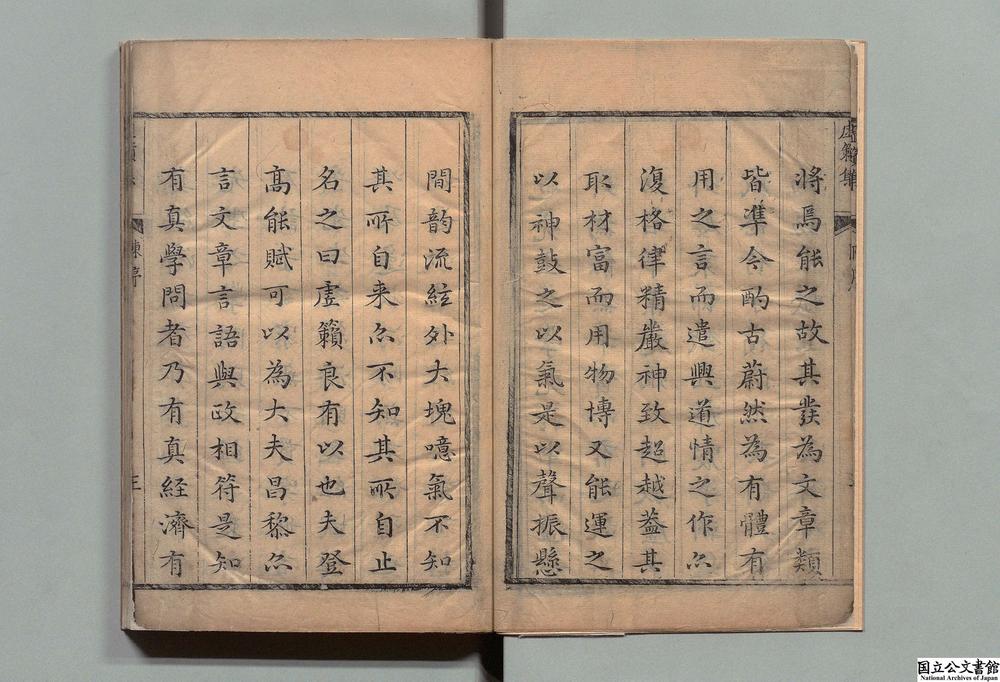 將焉能之故其發為文章類
皆凖今酌古蔚然為有體有
用之言而遣興道情之作亦
復格律精嚴神致超越葢其
取材富而用物博又能運之
以神鼓之以氣是以聲振懸
間韵流絃外大塊噫氣不知
其所自来亦不知其所自止
名之曰虗籟良有以也夫登
高能賦可以為大夫昌黎亦
言文章言語與政相符是知
有真學問者乃有真経濟有
国立公文書館
National Archives of Japan